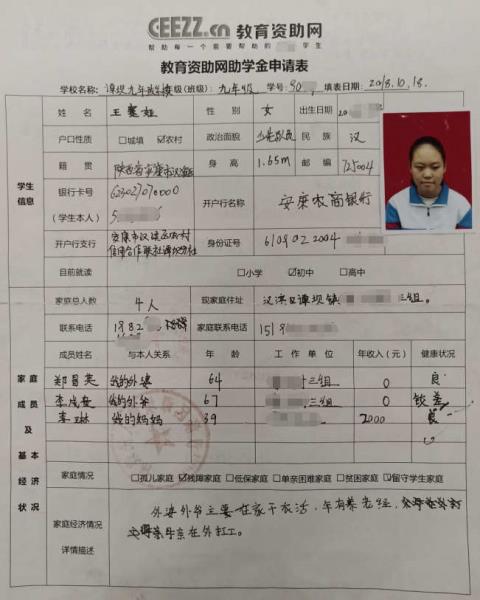 CEEZZ.cn 教育资助网
帮助每一个需要帮助的 学生
教育资助网助学金申请表
学校名称: 谭坝九年制学校 级(班级): 九年级 学号: 90 填表日期: 2018.10.18.
姓名 王 娃 性别 女 出生日期 20
户口性质 □城填 ☑农村 政治面貌 少先队员 民族 汉
学生
信息
籍贯 陕西省安康市汉滨区 身高 1.65m 邮编 725004
银行卡号 623027070000
(学生本人) 5
开户行名称 安康农商银行
开户行支行 安康市汉滨区农村
信用合作联社谭坝分社
身份证号 6109022004
目前就读 □小学 ☑初中 □高中
家庭总人数 4人 现家庭住址 汉滨区谭坝镇 三组。
联系电话 1882 家庭联系电话 1519
成员姓名 与本人关系 年龄 工作单位 年收入(元) 健康状况
家庭
成员
及
基本
经济
状况
郑昌英 我的外婆 64 三组 0 良
李成安 我的外爷 67 三组 0 较差
李 琳 我的妈妈 39 2000 良
家庭情况 □孤儿家庭 ☑残障家庭 □低保家庭 □单亲困难家庭 □贫困家庭 ☑留守学生家庭
家庭经济情况
详情描述
外婆外爷主要在家干农活,
母亲在外打工。